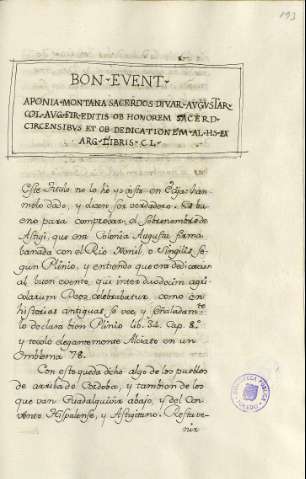 193
BON · EVENT ·
APONIA · MONTANA SACERDOS DIVAR · AVGVSTAR ·
COL · AVG · FIR · EDITIS OB HONOREM SACERD ·
CIRCENSIBVS ET OB DEDICATIONEM · AL · HS · EX
ARG · LIBRIS · CL ·
Este titulo no lo he yo visto en Ecija han
melo dado, y dicen ser verdadero. Es bu
eno para comprobar el sobrenombre de
Astigi, que era Colonia Augusta firma
banada con el Rio Xenil, o Singilis se
gun Plinio, y entiendo que era dedicacion
al buen evento, que inter duodecim agri
colarum Deos celebrabatur, como en
historias antiguas se vee, y señaladam.te
lo declara bien Plinio lib. 34. Cap. 8.º
y tocolo elegantemente Alciato en un
Emblema 78.
Con esto queda dcho algo de los pueblos
de arriba de Cordoba, y tambien de los
que van Guadalquivir abajo, y del Con
vento Hispalense, y Astigitano. Resta ve
nir
BIBLIOTECA PUBLICA
TOLEDO